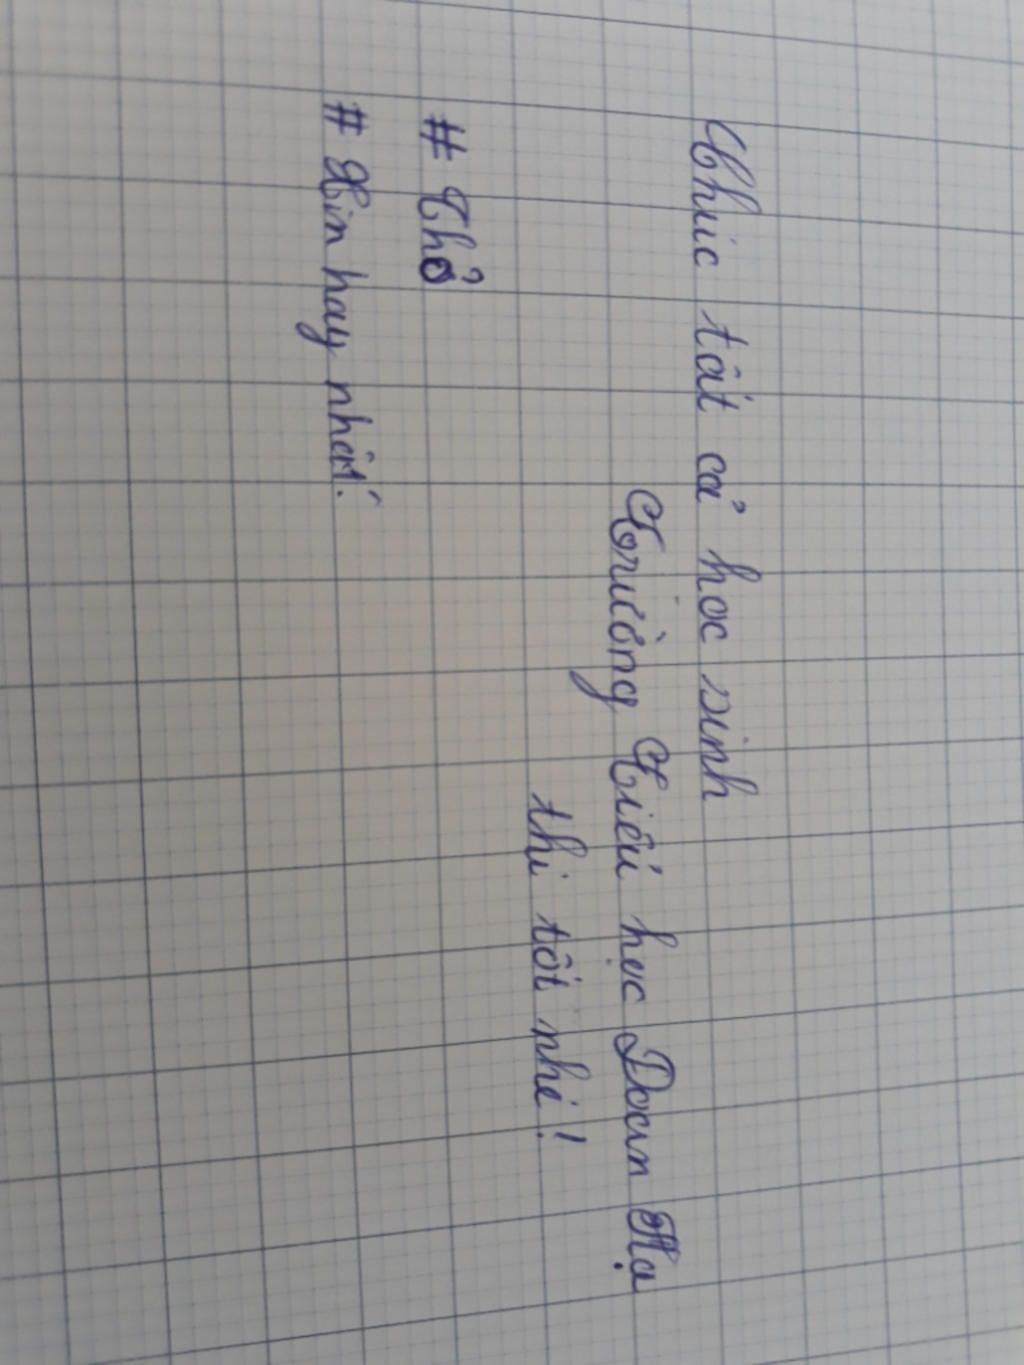 Chúc tất cả học sinh
Trường Tiểu học Doan Hạ
thi tốt nhé!
# Thỏ
# Xin hay nhất.